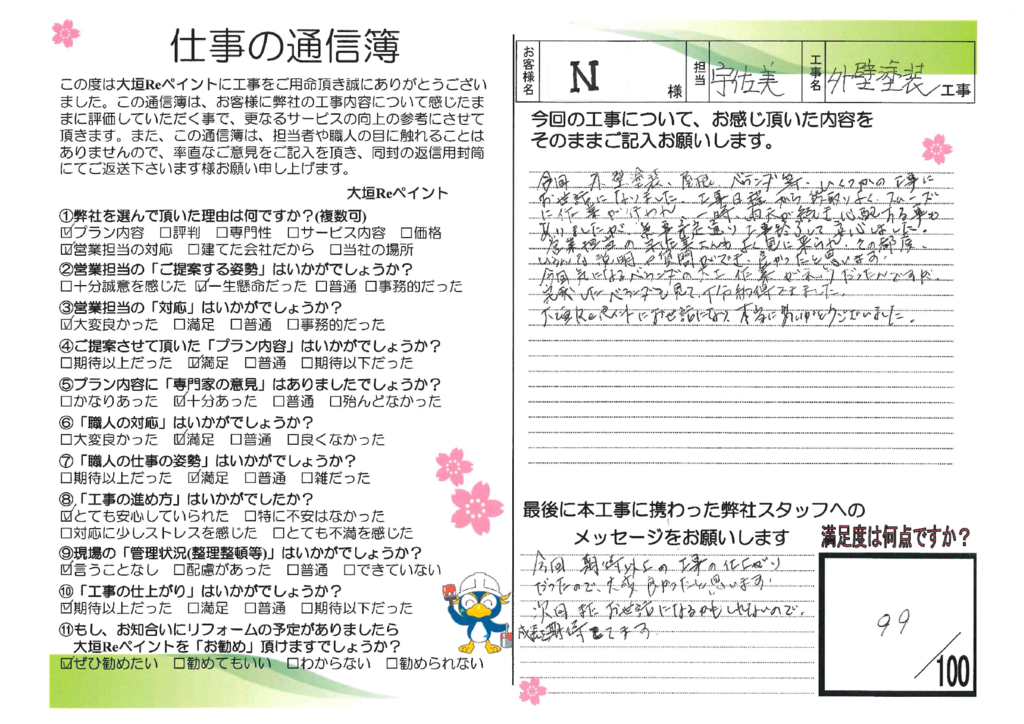 仕事の通信簿
この度は大垣Reペイントに工事をご用命頂き誠にありがとうござい
ました。この通信簿は、お客様に弊社の工事内容について感じたま
まに評価していただく事で、更なるサービスの向上の参考にさせて
頂きます。また、この通信簿は、担当者や職人の目に触れることは
ありませんので、率直なご意見をご記入を頂き、同封の返信用封筒
にてご返送下さいます様お願い申し上げます。
大垣Reペイント
①弊社を選んで頂いた理由は何ですか?(複数可)
☑プラン内容 □評判 □専門性 □サービス内容 □価格
☑営業担当の対応 □建てた会社だから □当社の場所
②営業担当の「ご提案する姿勢」はいかがでしょうか?
□十分誠意を感じた ☑一生懸命だった □普通 □事務的だった
③営業担当の「対応」はいかがでしょうか?
☑大変良かった □満足 □普通 □事務的だった
④ご提案させて頂いた「プラン内容」はいかがでしょうか?
□期待以上だった ☑満足 □普通 □期待以下だった
⑤プラン内容に「専門家の意見」はありましたでしょうか?
□かなりあった ☑十分あった □普通 □殆んどなかった
⑥「職人の対応」はいかがでしょうか?
□大変良かった ☑満足 □普通 □良くなかった
⑦「職人の仕事の姿勢」はいかがでしょうか?
□期待以上だった ☑満足 □普通 □雑だった
⑧「工事の進め方」はいかがでしたか?
☑とても安心していられた □特に不安はなかった
□対応に少しストレスを感じた □とても不満を感じた
⑨現場の「管理状況(整理整頓等)」はいかがでしょうか?
☑言うことなし □配慮があった □普通 □できていない
⑩「工事の仕上がり」はいかがでしょうか?
☑期待以上だった □満足 □普通 □期待以下だった
⑪もし、お知合いにリフォームの予定がありましたら
大垣Reペイントを「お勧め」頂けますでしょうか?
☑ぜひ勧めたい □勧めてもいい □わからない □勧められない
お客様名 N 様 担当 宇佐美 工事名 外壁塗装/工事
今回の工事について、お感じ頂いた内容を
そのままご記入お願いします。
今回 外壁塗装、屋根、ベランダ等、いくつかの工事に
お世話になりました。工事日程から段取りよく、スムーズ
に作業が行われ、一時、雨天が続き心配する事も
ありましたが、予定通り工事終了して安心しました。
営業担当の宇佐美さんもよく見に来られ、その都度、
いろんな説明や質問ができ、良かったと思います。
今回気になるベランダの工作業がありだったんですが、
完成したベランダを見て、納得できました。
大垣Reペイントにお世話になり、本当にありがとうございました。
最後に本工事に携わった弊社スタッフへの
メッセージをお願いします
今回 期待以上の工事の仕上がり
だったので、大変良かったと思います。
次回またお世話になるかもしれないので、
期待してます
満足度は何点ですか?
99
/100